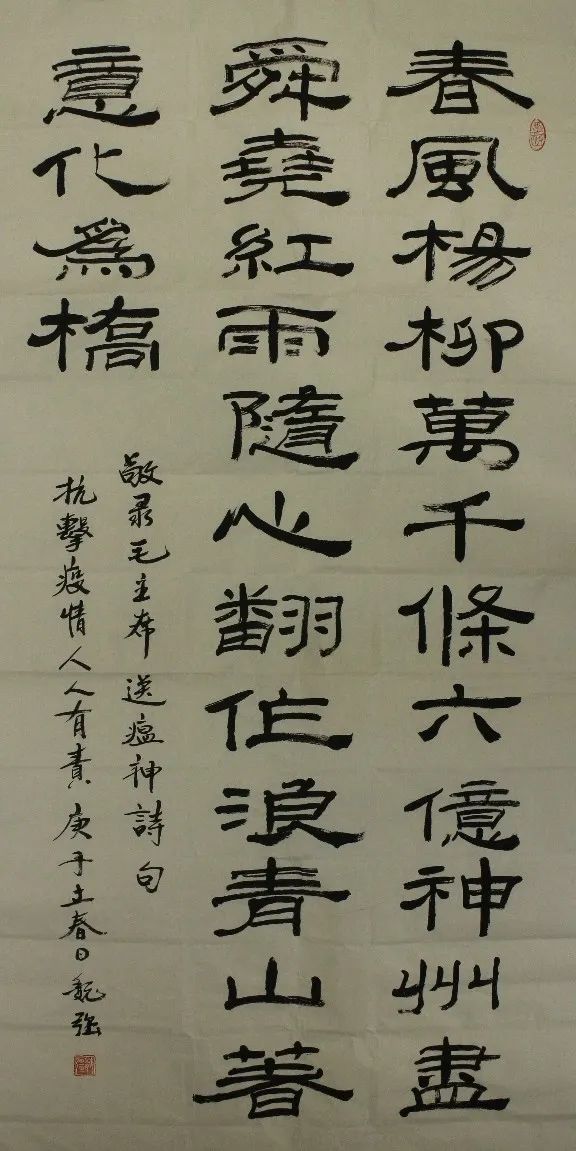 春風楊柳萬千條六億神州盡
舜堯紅雨隨心翻作浪青山著
意化為橋
敬录毛主席送瘟神詩句
抗擊疫情人人有責庚子立春日魏强